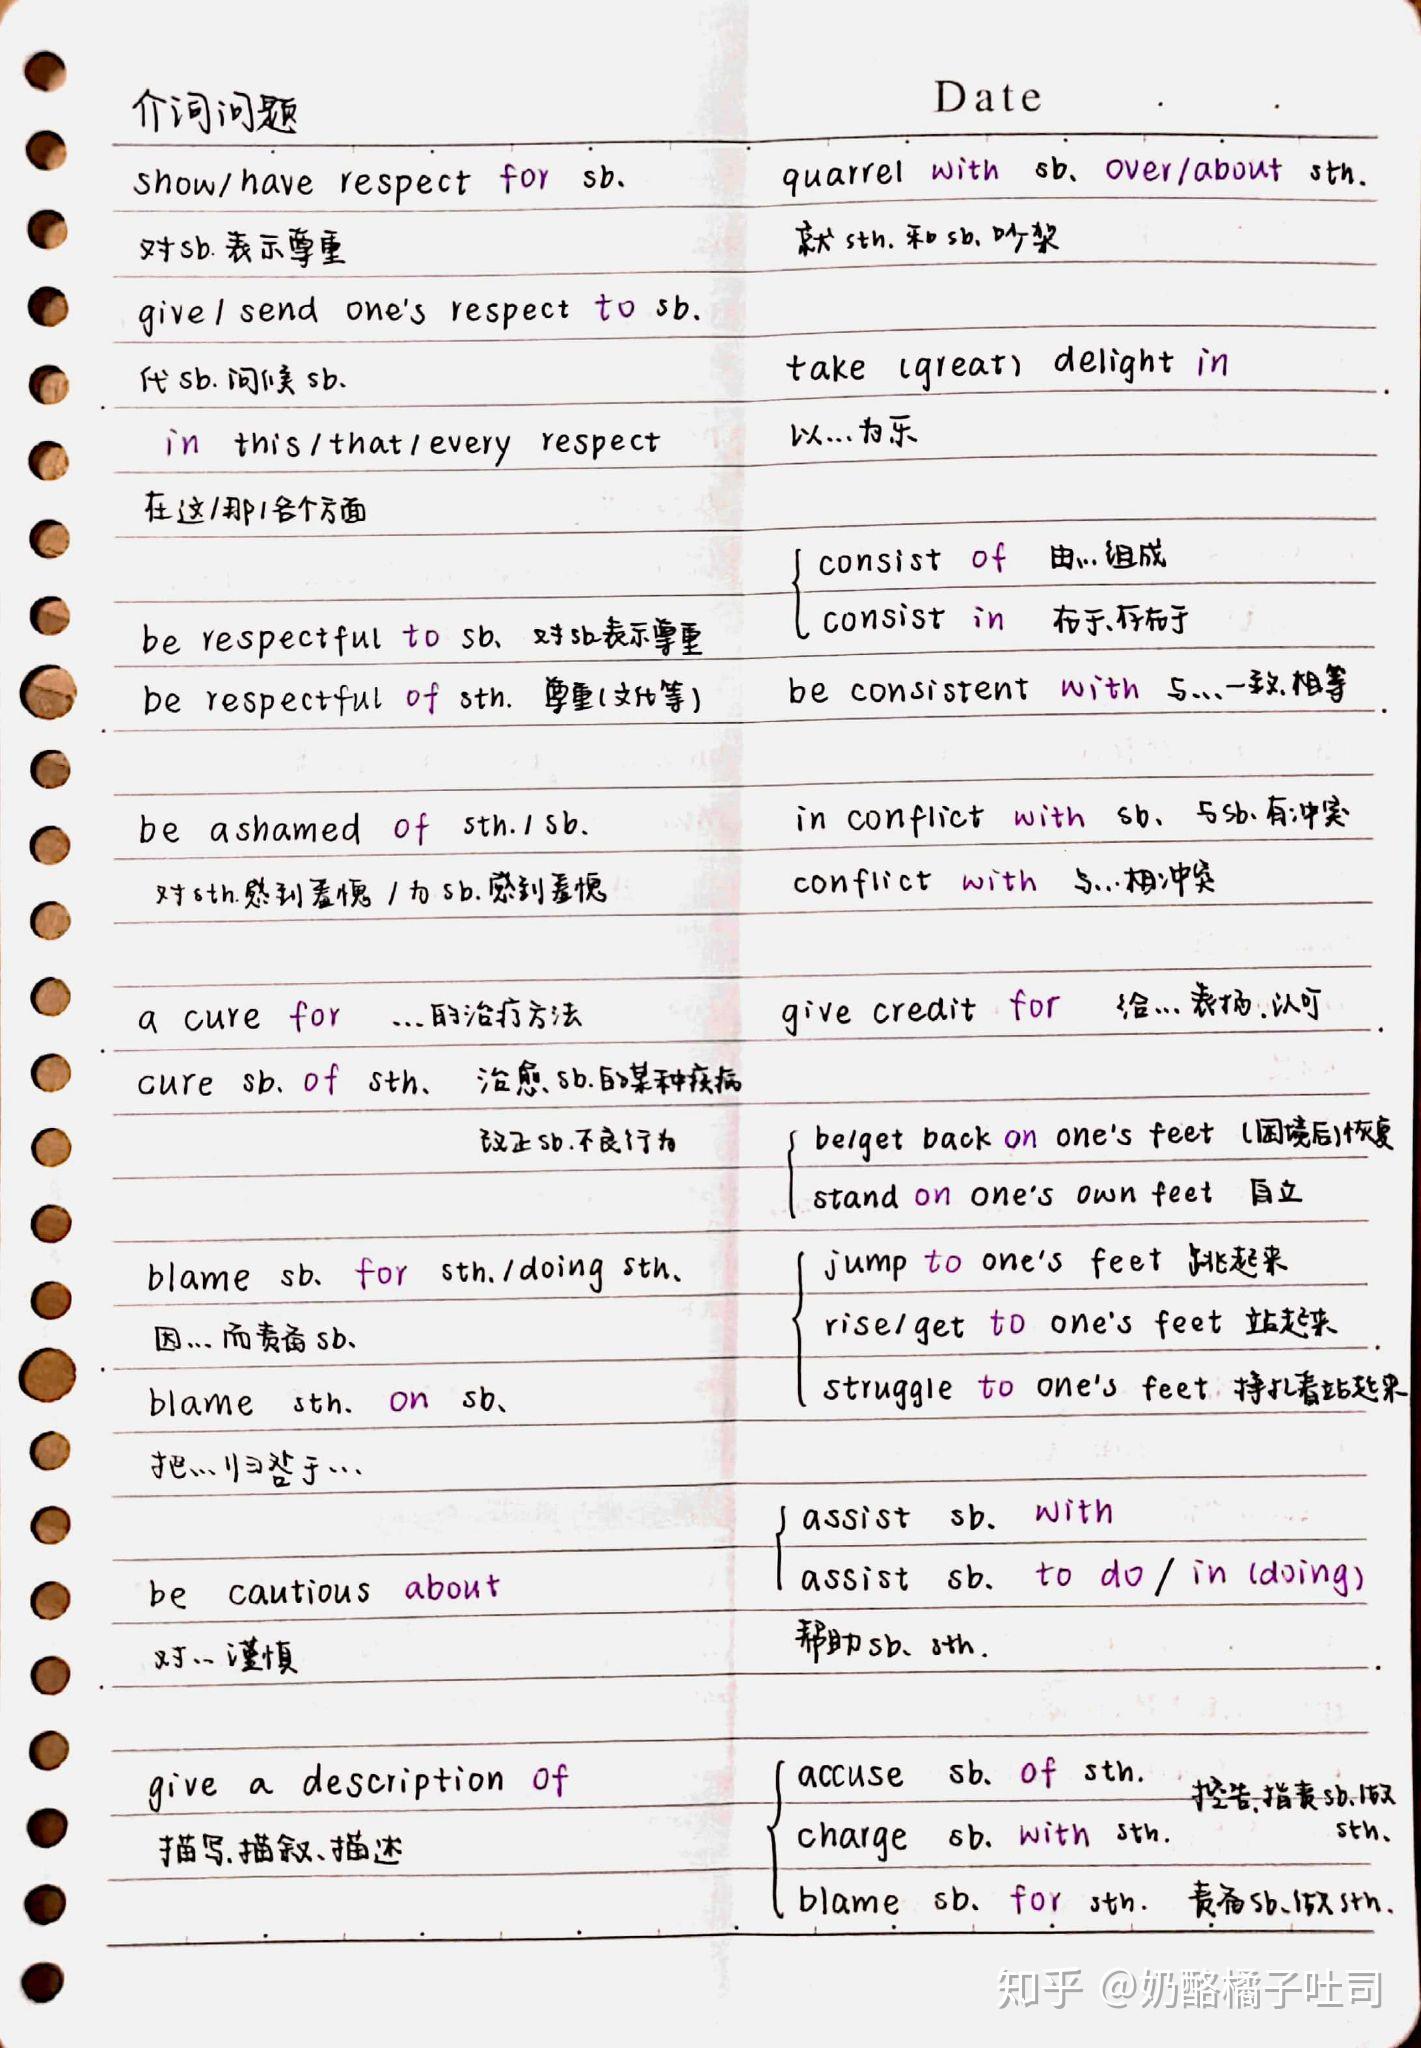 介词问题
Date
show/have respect for sb.
对sb.表示尊重
give/send one's respect to sb.
代sb.问候sb.
in this/that/every respect
在这/那/各个方面
be respectful to sb. 对sb表示尊重
be respectful of sth. 尊重(文化等)
be ashamed of sth./sb.
对sth.感到羞愧/为sb.感到羞愧
a cure for ...的治疗方法
cure sb. of sth. 治愈sb.的某种疾病
改正sb.不良行为
blame sb. for sth./doing sth.
因...而责备sb.
blame sth. on sb.
把...归咎于...
be cautious about
对...谨慎
give a description of
描写.描叙.描述
quarrel with sb. over/about sth.
就sth.和sb.吵架
take (great) delight in
以...为乐
consist of 由...组成
consist in 在于、存在于
be consistent with 与...一致.相等
in conflict with sb. 与sb.有冲突
conflict with 与...相冲突
give credit for 给...表扬.认可
be/get back on one's feet (困境后)恢复
stand on one's own feet 自立
jump to one's feet 跳起来
rise/get to one's feet 站起来
struggle to one's feet 挣扎着站起来
assist sb. with
assist sb. to do / in (doing)
帮助sb. sth.
accuse sb. of sth.
charge sb. with sth.
控告.指责sb.做
sth.
blame sb. for sth. 责备sb.做sth.
知乎 @奶酪橘子吐司